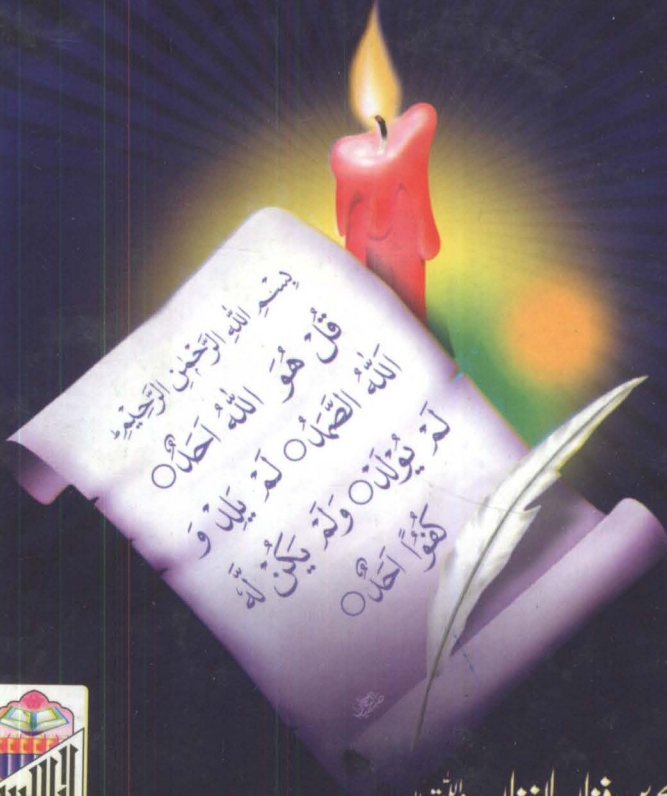 بِسْمِ اللهِ الرَّحْمٰنِ الرَّحِيْمِ
قُلْ هُوَ اللهُ اَحَدٌ
اَللهُ الصَّمَدُ لَمْ يَلِدْ وَ
لَمْ يُوْلَدْ وَلَمْ يَكُنْ لَّهٗ
كُفُوًا اَحَدٌ